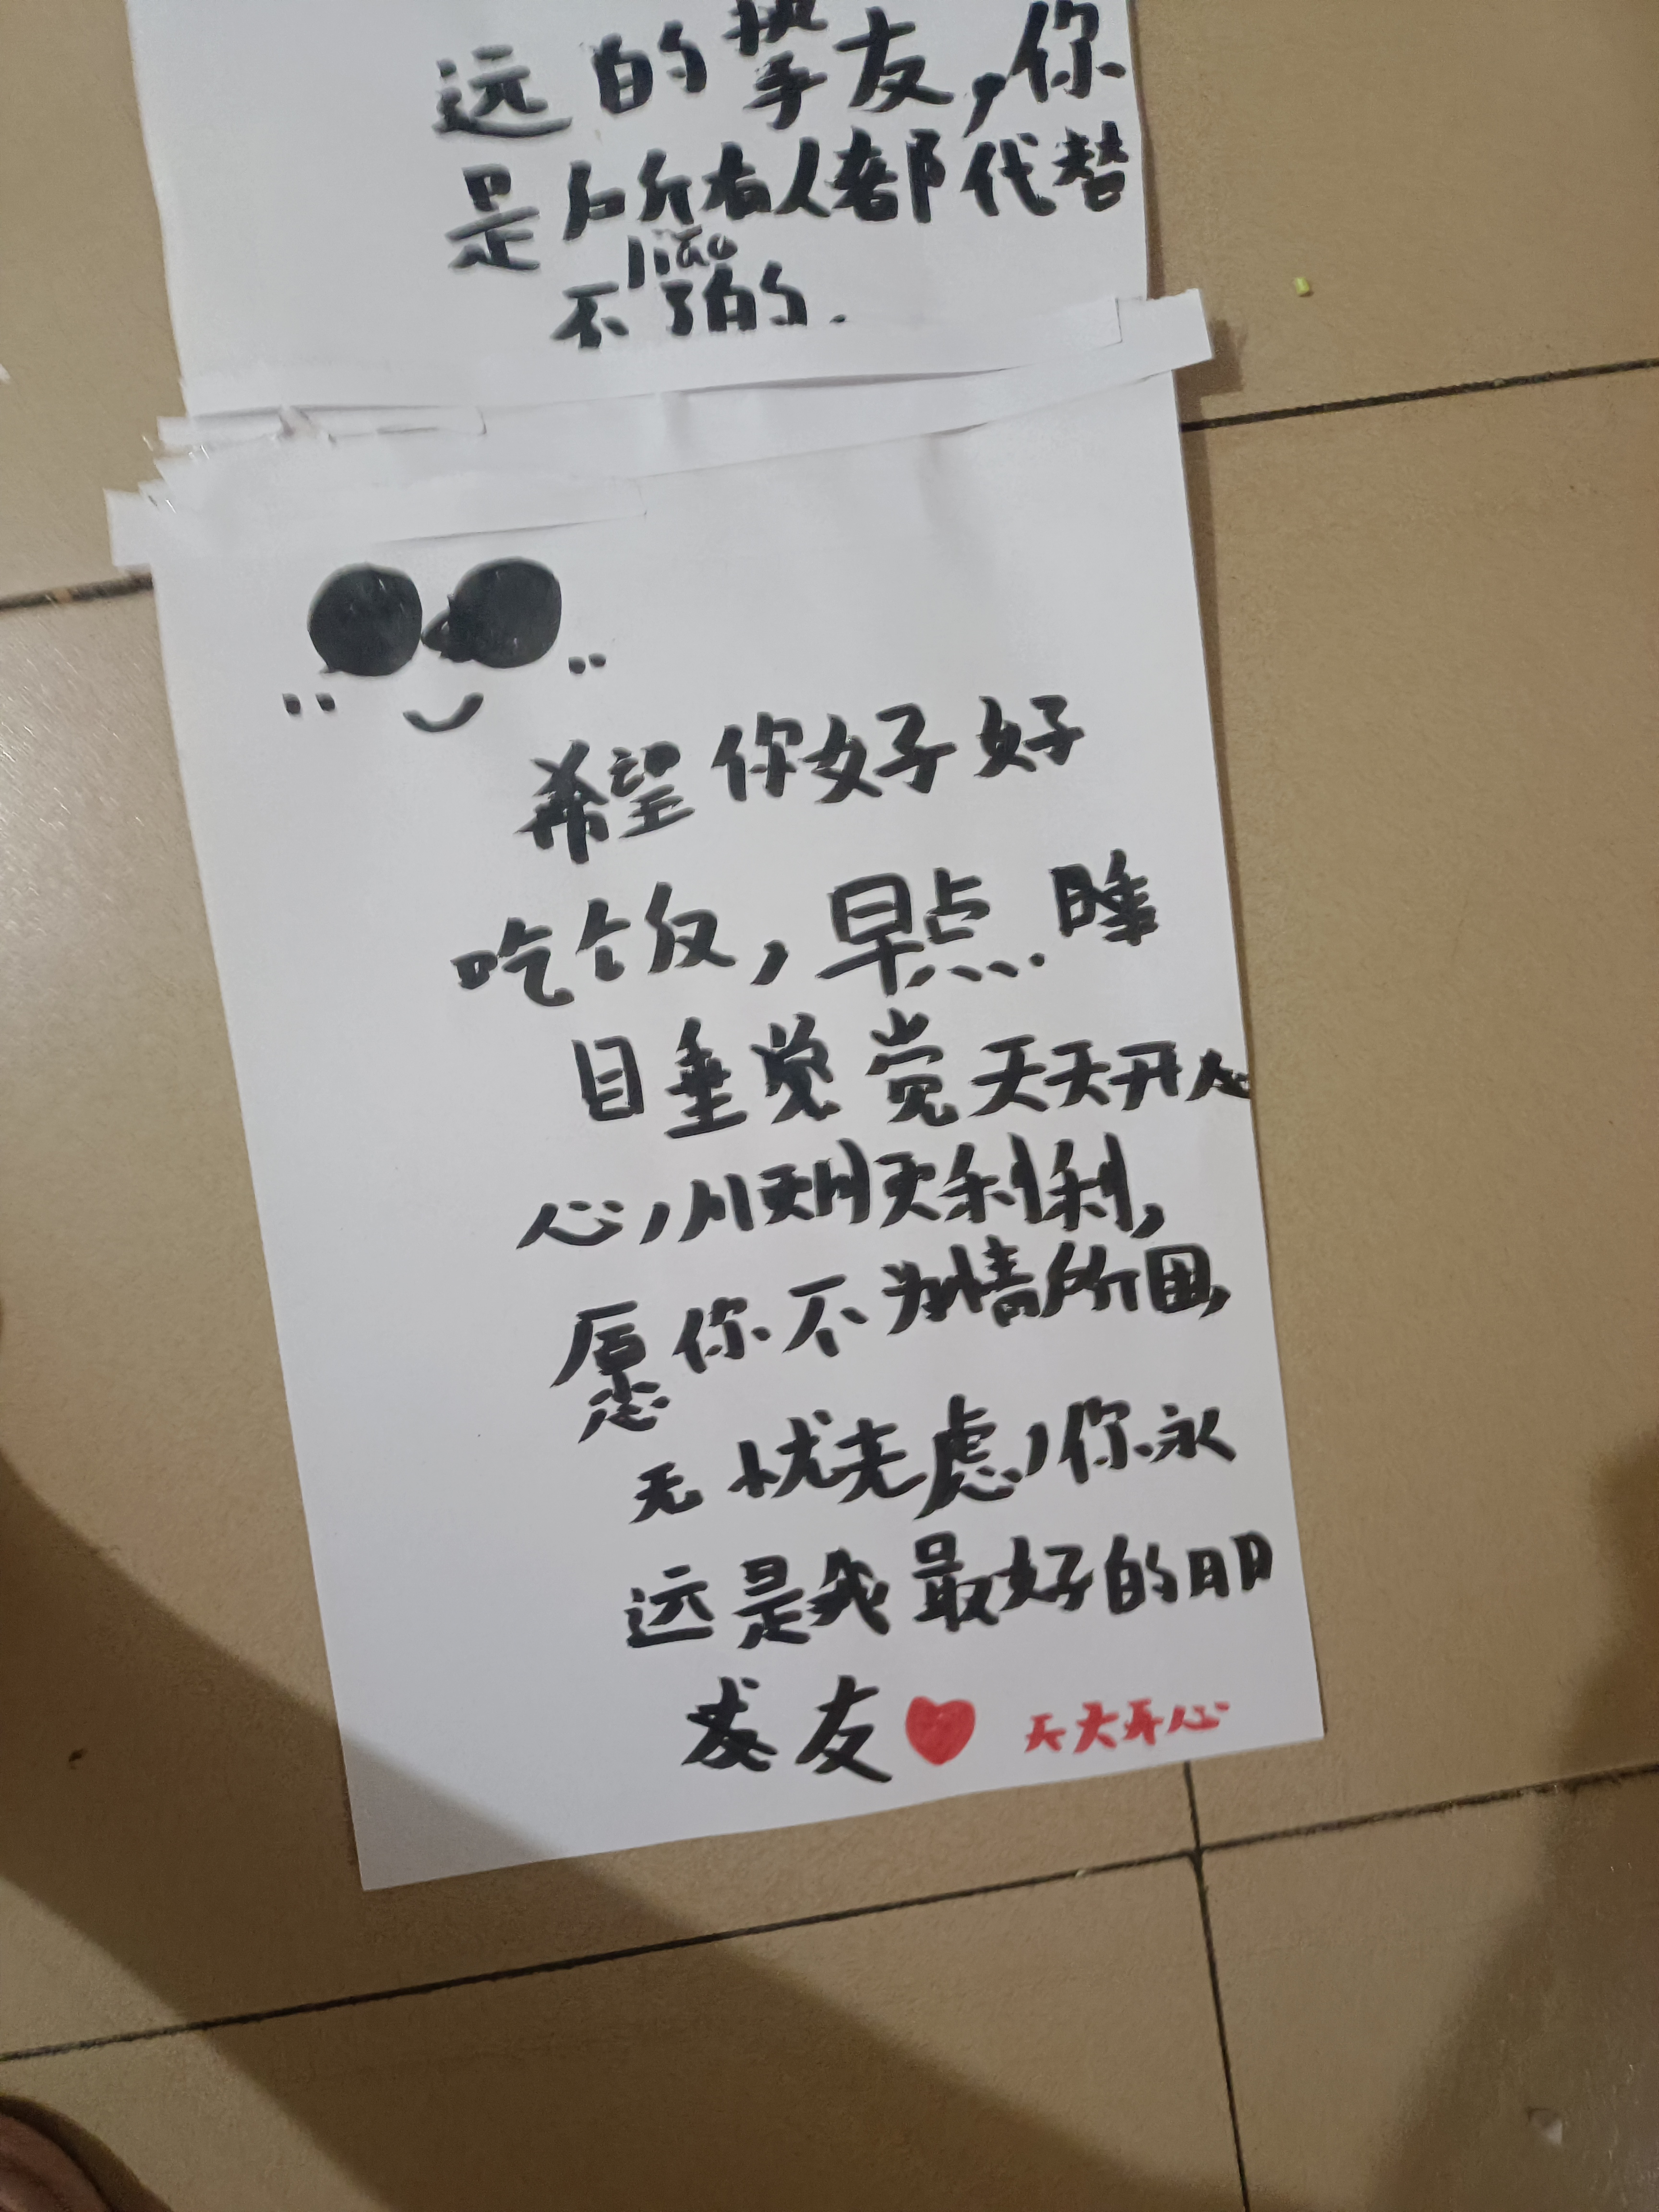 远的挚友,你
是所有人都代替
liǎo
不了的.
希望你好好
吃饭,早点睡
睡觉觉天天开心
心,顺顺利利,
愿你不为情所困,
无忧无虑,你永
远是我最好的朋
友❤ 天天开心